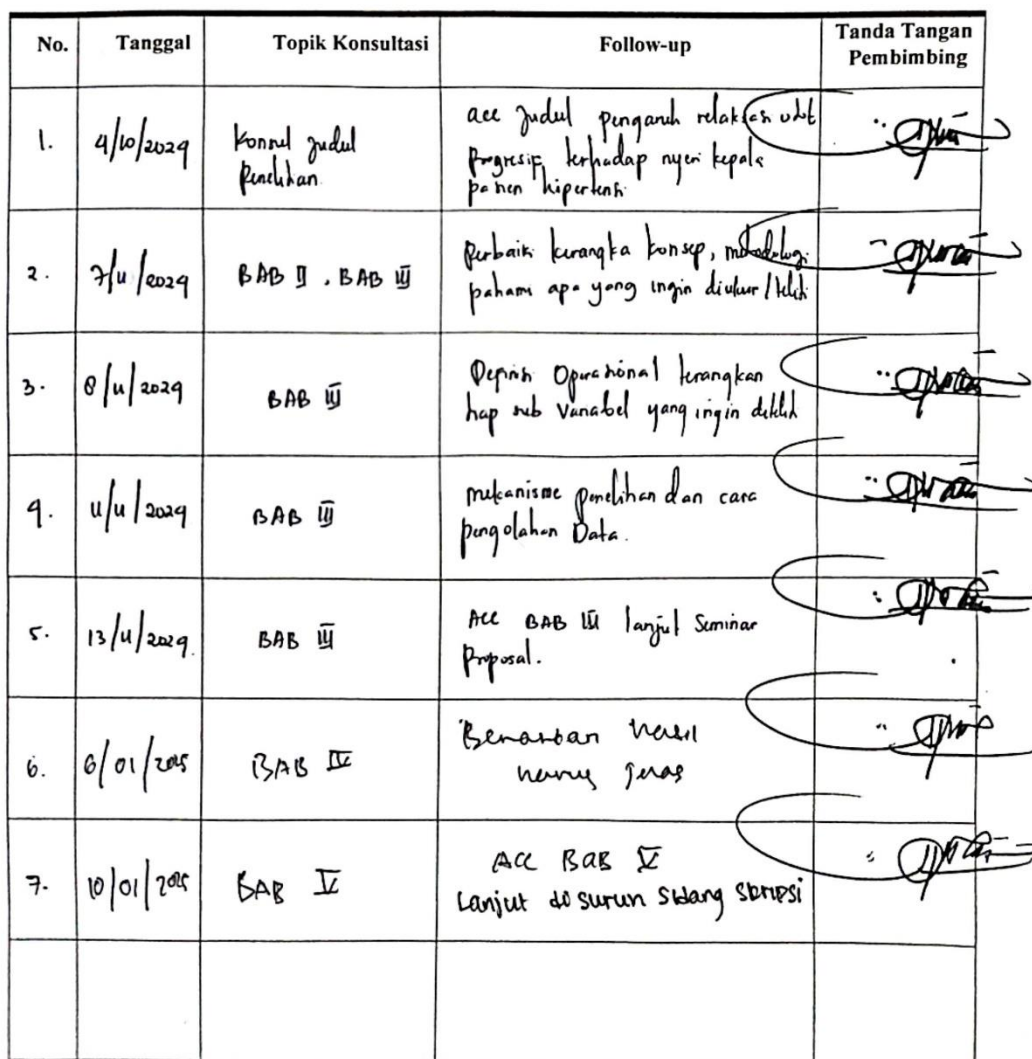 No. Tanggal Topik Konsultasi Follow-up Tanda Tangan
Pembimbing
1. 4/10/2024 Konsul judul
penelitian
acc judul pengaruh relaksasi otot
progresif terhadap nyeri kepala
pasien hipertensi
2. 7/11/2024 BAB II, BAB III
Perbaiki kerangka konsep, metodologi
pahami apa yang ingin diukur/teliti
3. 8/11/2024 BAB III
Depinisi Operasional terangkan
tiap sub variabel yang ingin diteliti
4. 11/11/2024 BAB III
mekanisme penelitian dan cara
pengolahan Data.
5. 13/11/2024. BAB III
Acc BAB III lanjut Seminar
Proposal.
6. 6/01/2025 BAB IV
hasil
harus jelas
7. 10/01/2025 BAB V
ACC BAB V
Lanjut di susun sidang skripsi